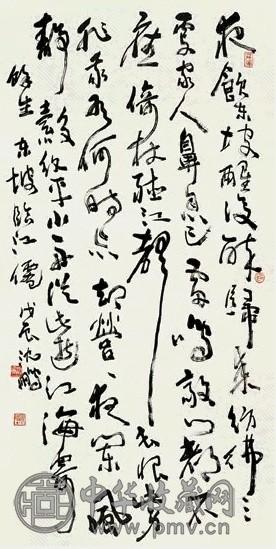 夜飲东坡醒復醉歸来彷彿三
更家人鼻息已雷鳴敲门都不
應倚杖聽江聲長恨此身
非我有何時忘却營營夜闌風
靜縠紋平小舟從此逝江海寄
餘生 东坡臨江僊 戊辰沈鵬
中华收藏网
www.pmv.cn